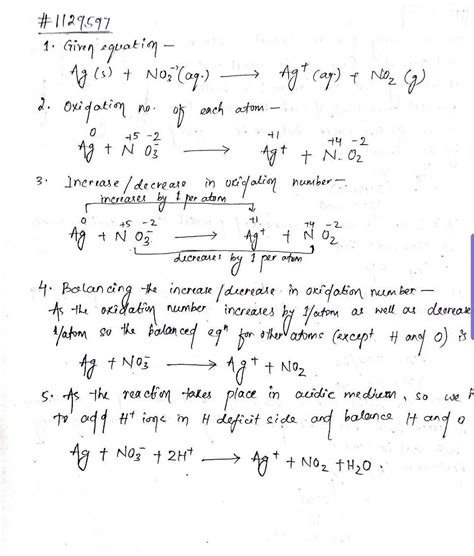 #1129597
1. Given equation —
Ag(s) + NO₃⁻(aq.) ⟶ Ag⁺(aq.) + NO₂(g)
2. Oxidation no. of each atom —
0 +5 -2 +1 +4 -2
Ag + N O₃⁻ ⟶ Ag⁺ + N O₂
3. Increase/decrease in oxidation number —
increases by 1 per atom
0 +5 -2 +1 +4 -2
Ag + N O₃⁻ ⟶ Ag⁺ + N O₂
decreases by 1 per atom
4. Balancing the increase/decrease in oxidation number —
As the oxidation number increases by 1/atom as well as decrease
1/atom so the balanced eqⁿ for other atoms (except H and O) is
Ag + NO₃⁻ ⟶ Ag⁺ + NO₂
5. As the reaction takes place in acidic medium, so we
to add H⁺ ions in H deficit side and balance H and O
Ag + NO₃⁻ + 2H⁺ ⟶ Ag⁺ + NO₂ + H₂O.